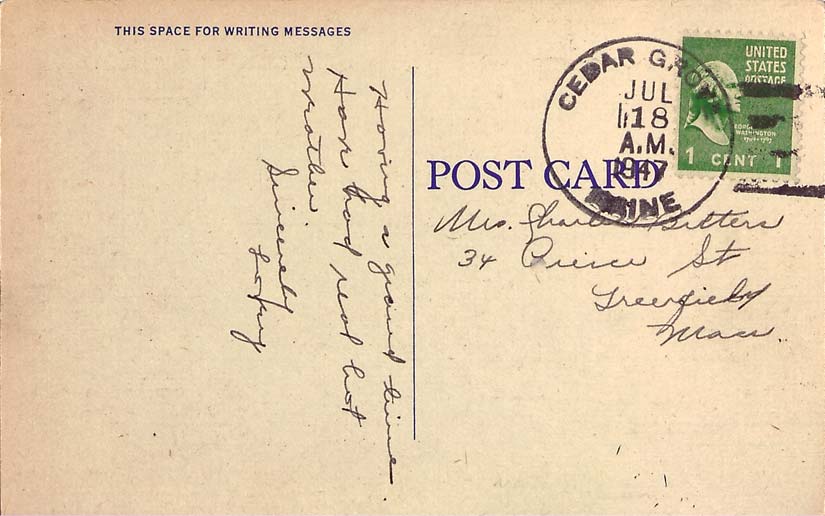 THIS SPACE FOR WRITING MESSAGES
Having a grand time.
Have had real hot
weather
Sincerely
POST CARD
CEDAR GROVE
JUL
18
A.M.
1947
MAINE
UNITED
STATES
POSTAGE
GEORGE
WASHINGTON
1 CENT 1
Mrs. Charles Bitters
34 Pierce St
Greenfield
Mass.